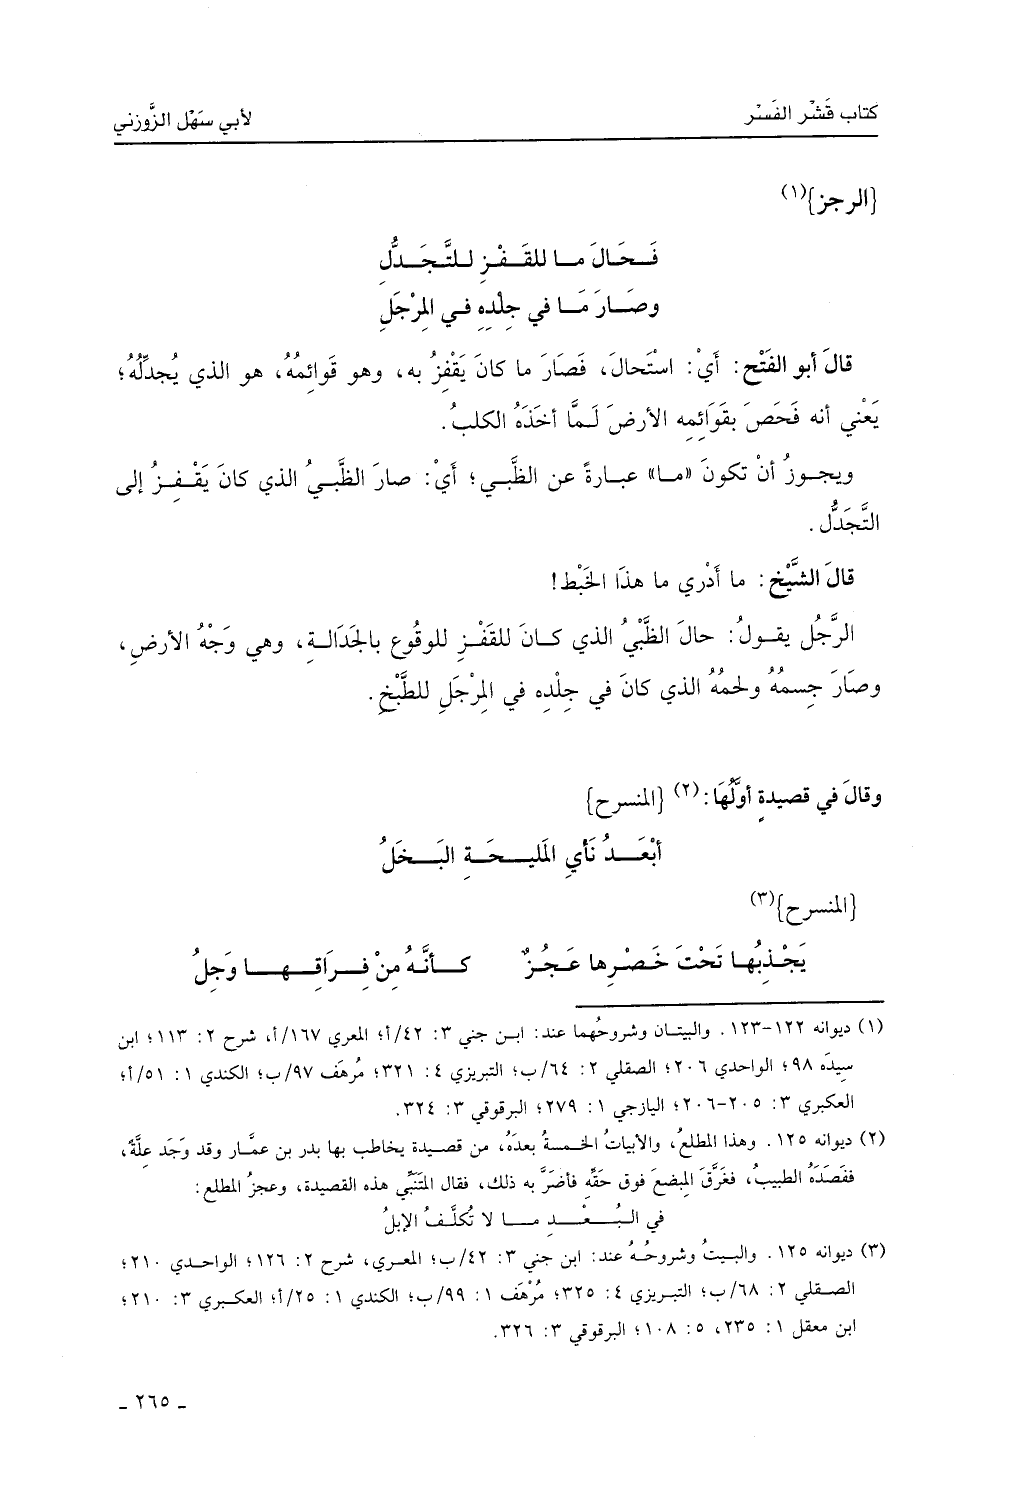 كتاب قَشْر الفَسْر
لأبي سَهْل الزَّوزني
{الرجز}(١)
فَـحَالَ مـا للقَـفْـزِ للـتَّـجَـدُّلِ
وصَـارَ مَـا في جِلْدِهِ فـي المِرْجَلِ
قالَ أبو الفَتْح: أَيْ: استَحالَ، فَصَارَ ما كانَ يَقْفِزُ به، وهو قَوائِمُهُ، هو الذي يُجدِّلُهُ؛
يَعْني أنه فَحَصَ بقَوَائِمِه الأرضَ لَـمَّا أخَذَهُ الكلبُ.
ويجـوزُ أنْ تكونَ «مـا» عبـارةً عن الظَّبـي؛ أَيْ: صارَ الظَّبـيُ الذي كانَ يَقْـفِـزُ إلى
التَّجَدُّل.
قالَ الشَّيْخ: ما أَدْري ما هذَا الخَبْط!
الرَّجُل يقـولُ: حالَ الظَّبْيُ الذي كـانَ للقَفْـزِ للوقُوعِ بالجَدَالـةِ، وهي وَجْهُ الأرضِ،
وصَارَ جِسمُهُ ولحمُهُ الذي كانَ في جِلْدِه في المِرْجَلِ للطَّبْخِ.
وقالَ في قصيدةٍ أوَّلُهَا:(٢) {المنسرح}
أبْعَـــدُ نَأيِ المَليـــحَـةِ البَـــخَلُ
{المنسرح}(٣)
يَجْـذِبُهـا تَحْتَ خَصْـرِها عَـجُـزٌ كــأنَّـهُ مِنْ فِـرَاقِـهـا وَجِلُ
(١) ديوانه ١٢٢-١٢٣. والبيتـان وشروحُهما عند: ابـن جني ٣: ٤٢/أ؛ المعري ١٦٧/أ، شرح ٢: ١١٣؛ ابن
سِيدَه ٩٨؛ الواحدي ٢٠٦؛ الصقلي ٢: ٦٤/ب؛ التبريزي ٤: ٣٢١؛ مُرهَف ٩٧/ب؛ الكندي ١: ٥١/أ؛
العكبري ٣: ٢٠٥-٢٠٦؛ اليازجي ١: ٢٧٩؛ البرقوقي ٣: ٣٢٤.
(٢) ديوانه ١٢٥. وهذا المطلعُ، والأبياتُ الخمسةُ بعدَهُ، من قصيدة يخاطب بها بدر بن عمَّار وقد وَجَد عِلَّةً،
ففَصَدَهُ الطبيبُ، فغَرَّقَ المِبضعَ فوق حَقِّه فأضَرَّ به ذلك، فقال المُتَنَبِّي هذه القصيدة، وعجزُ المطلع:
في البُــعْــدِ مــا لا تُكلَّـفُ الإبلُ
(٣) ديوانه ١٢٥. والبيتُ وشروحُـهُ عند: ابن جني ٣: ٤٢/ب؛ المعـري، شرح ٢: ١٢٦؛ الواحـدي ٢١٠؛
الصـقلي ٢: ٦٨/ب؛ التبـريزي ٤: ٣٢٥؛ مُرْهَف ١: ٩٩/ب؛ الكندي ١: ٢٥/أ؛ العكـبري ٣: ٢١٠؛
ابن معقل ١: ٢٣٥، ٥: ١٠٨؛ البرقوقي ٣: ٣٢٦.
ـ ٢٦٥ ـ